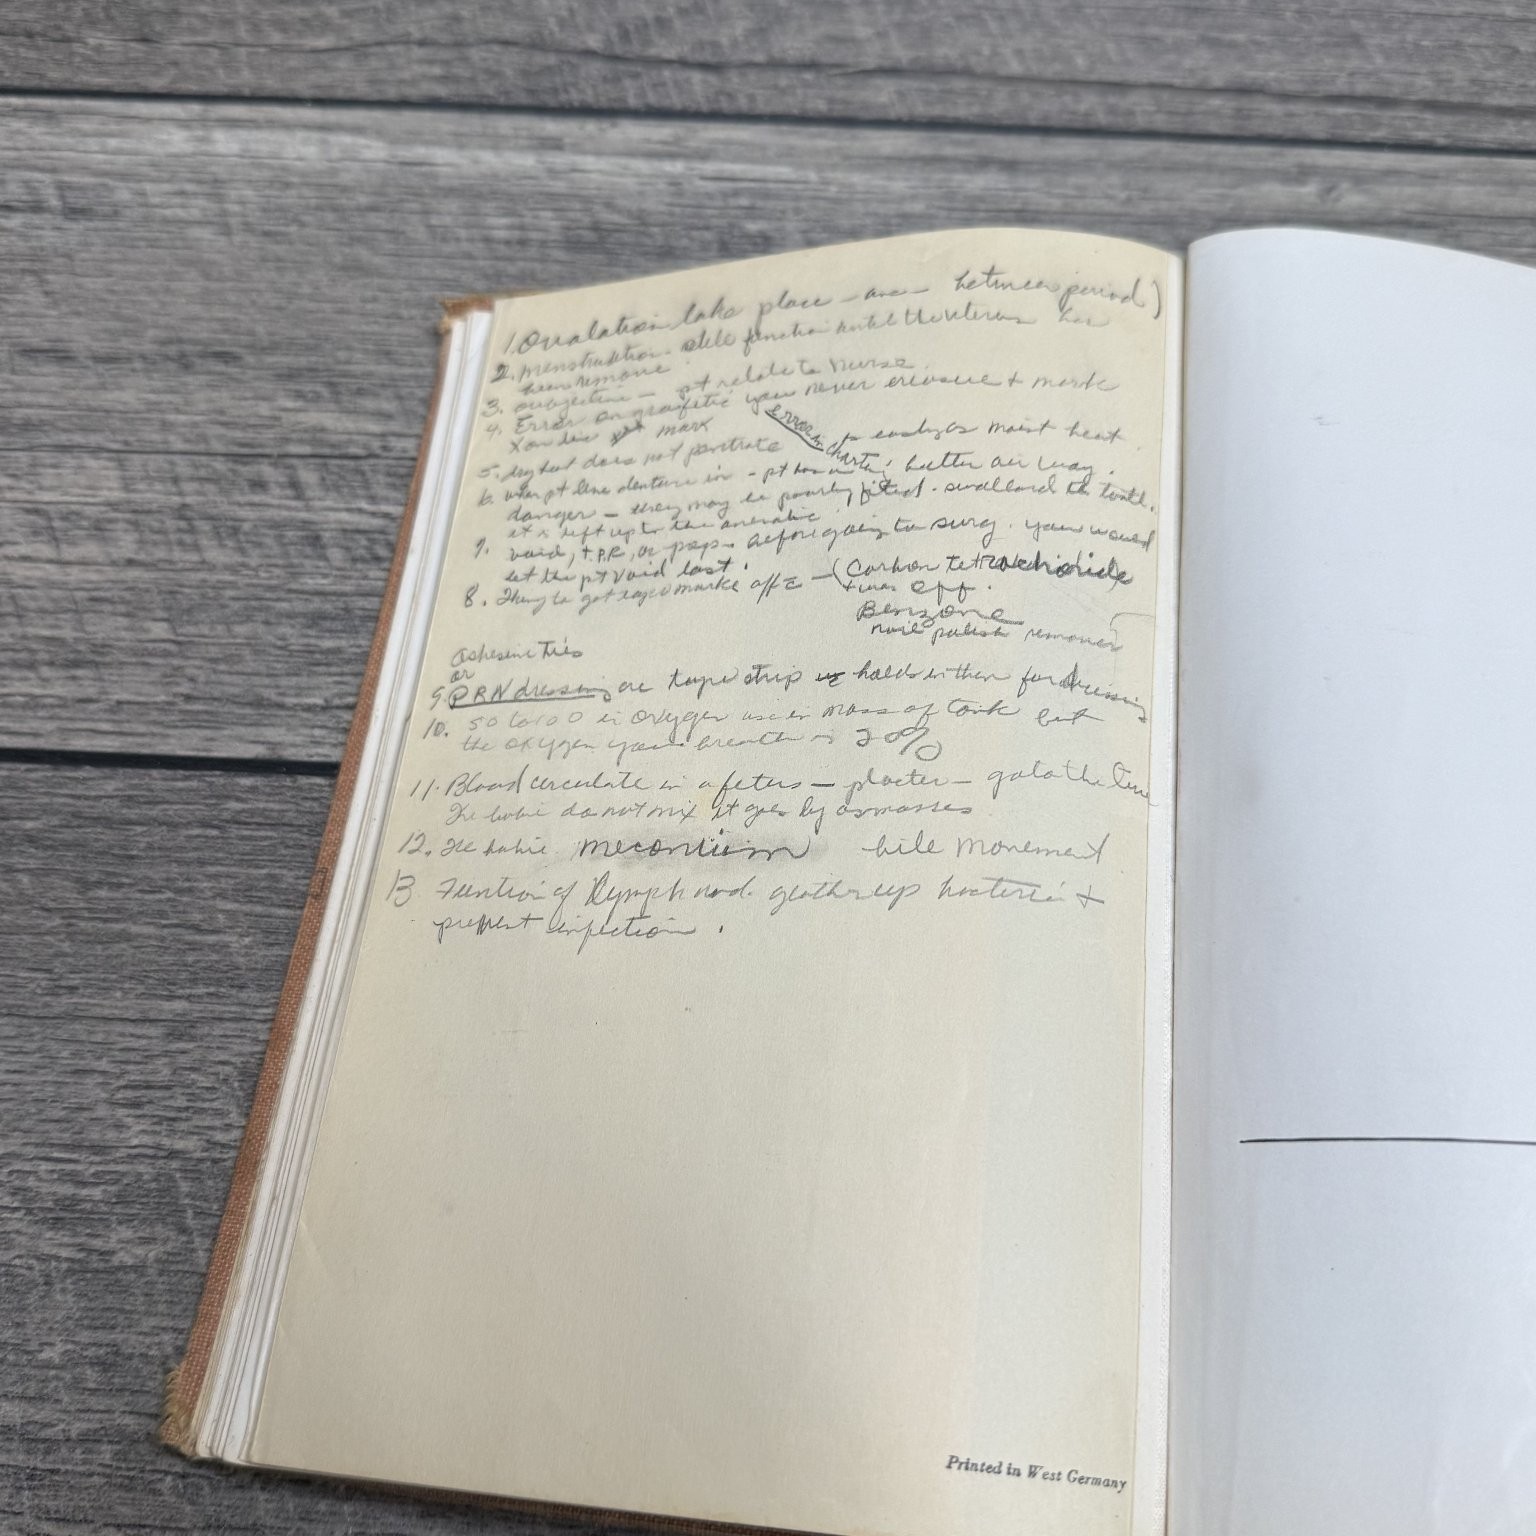 1. Ovulation take place – are – between period)
2. menstruation. still function until the uterus has
been remove
3. subjective – pt relate to nurse.
4. Error on grafetic you never erease + mark
X on line mark
Error in charting
5. dry heat does not pentrate as easly as moist heat.
6. when pt line denture in – pt has better air way.
danger – they may be poorly fited. swallord the tooth.
it is left up to the
7. void, T.P.R, or prep. before going to surg. you would
let the pt void last.
8. Thing to get tape marke off – (Carbon tetrachoride
+ wax off.
Benzone
nail polish remover
Adhesive ties
or
9. PRN dressing are tape strip holds in them for dressing
10. 50 to 100 in oxygen use in mass of tank but
the oxygen you breath is 20%
11. Blood circulate in a feters – placter – go to the
The babie do not mix it goes by osmosses
12. The babie meconium bile movement
13 Funtion of lymph nod. gather up bacteria +
prevent infection.
Printed in West Germany